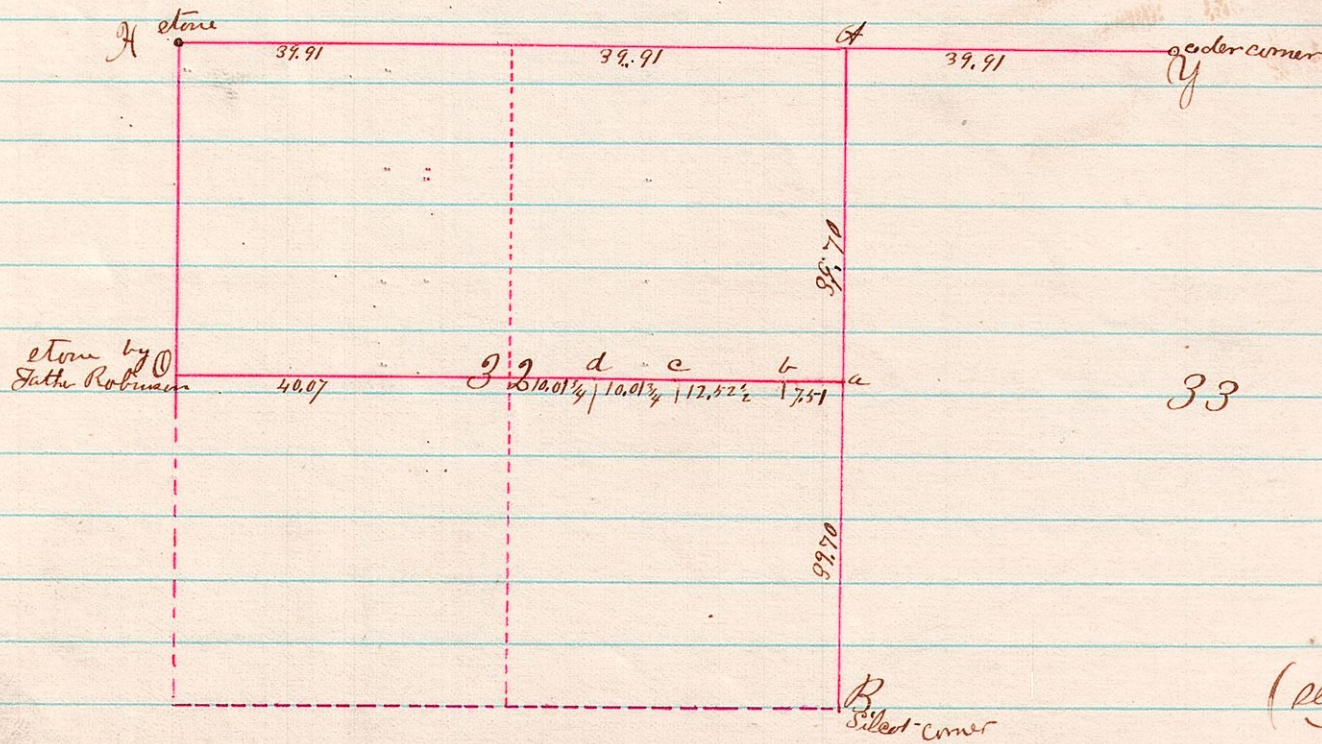 H stone
A
39.91 39.91 39.91
oder corner
Y
39.70
stone by O
Father Robinson
32 d c b a
40.07 10.01¾ 10.01¾ 12.52½ 7.51
33
39.70
B
Silcot corner